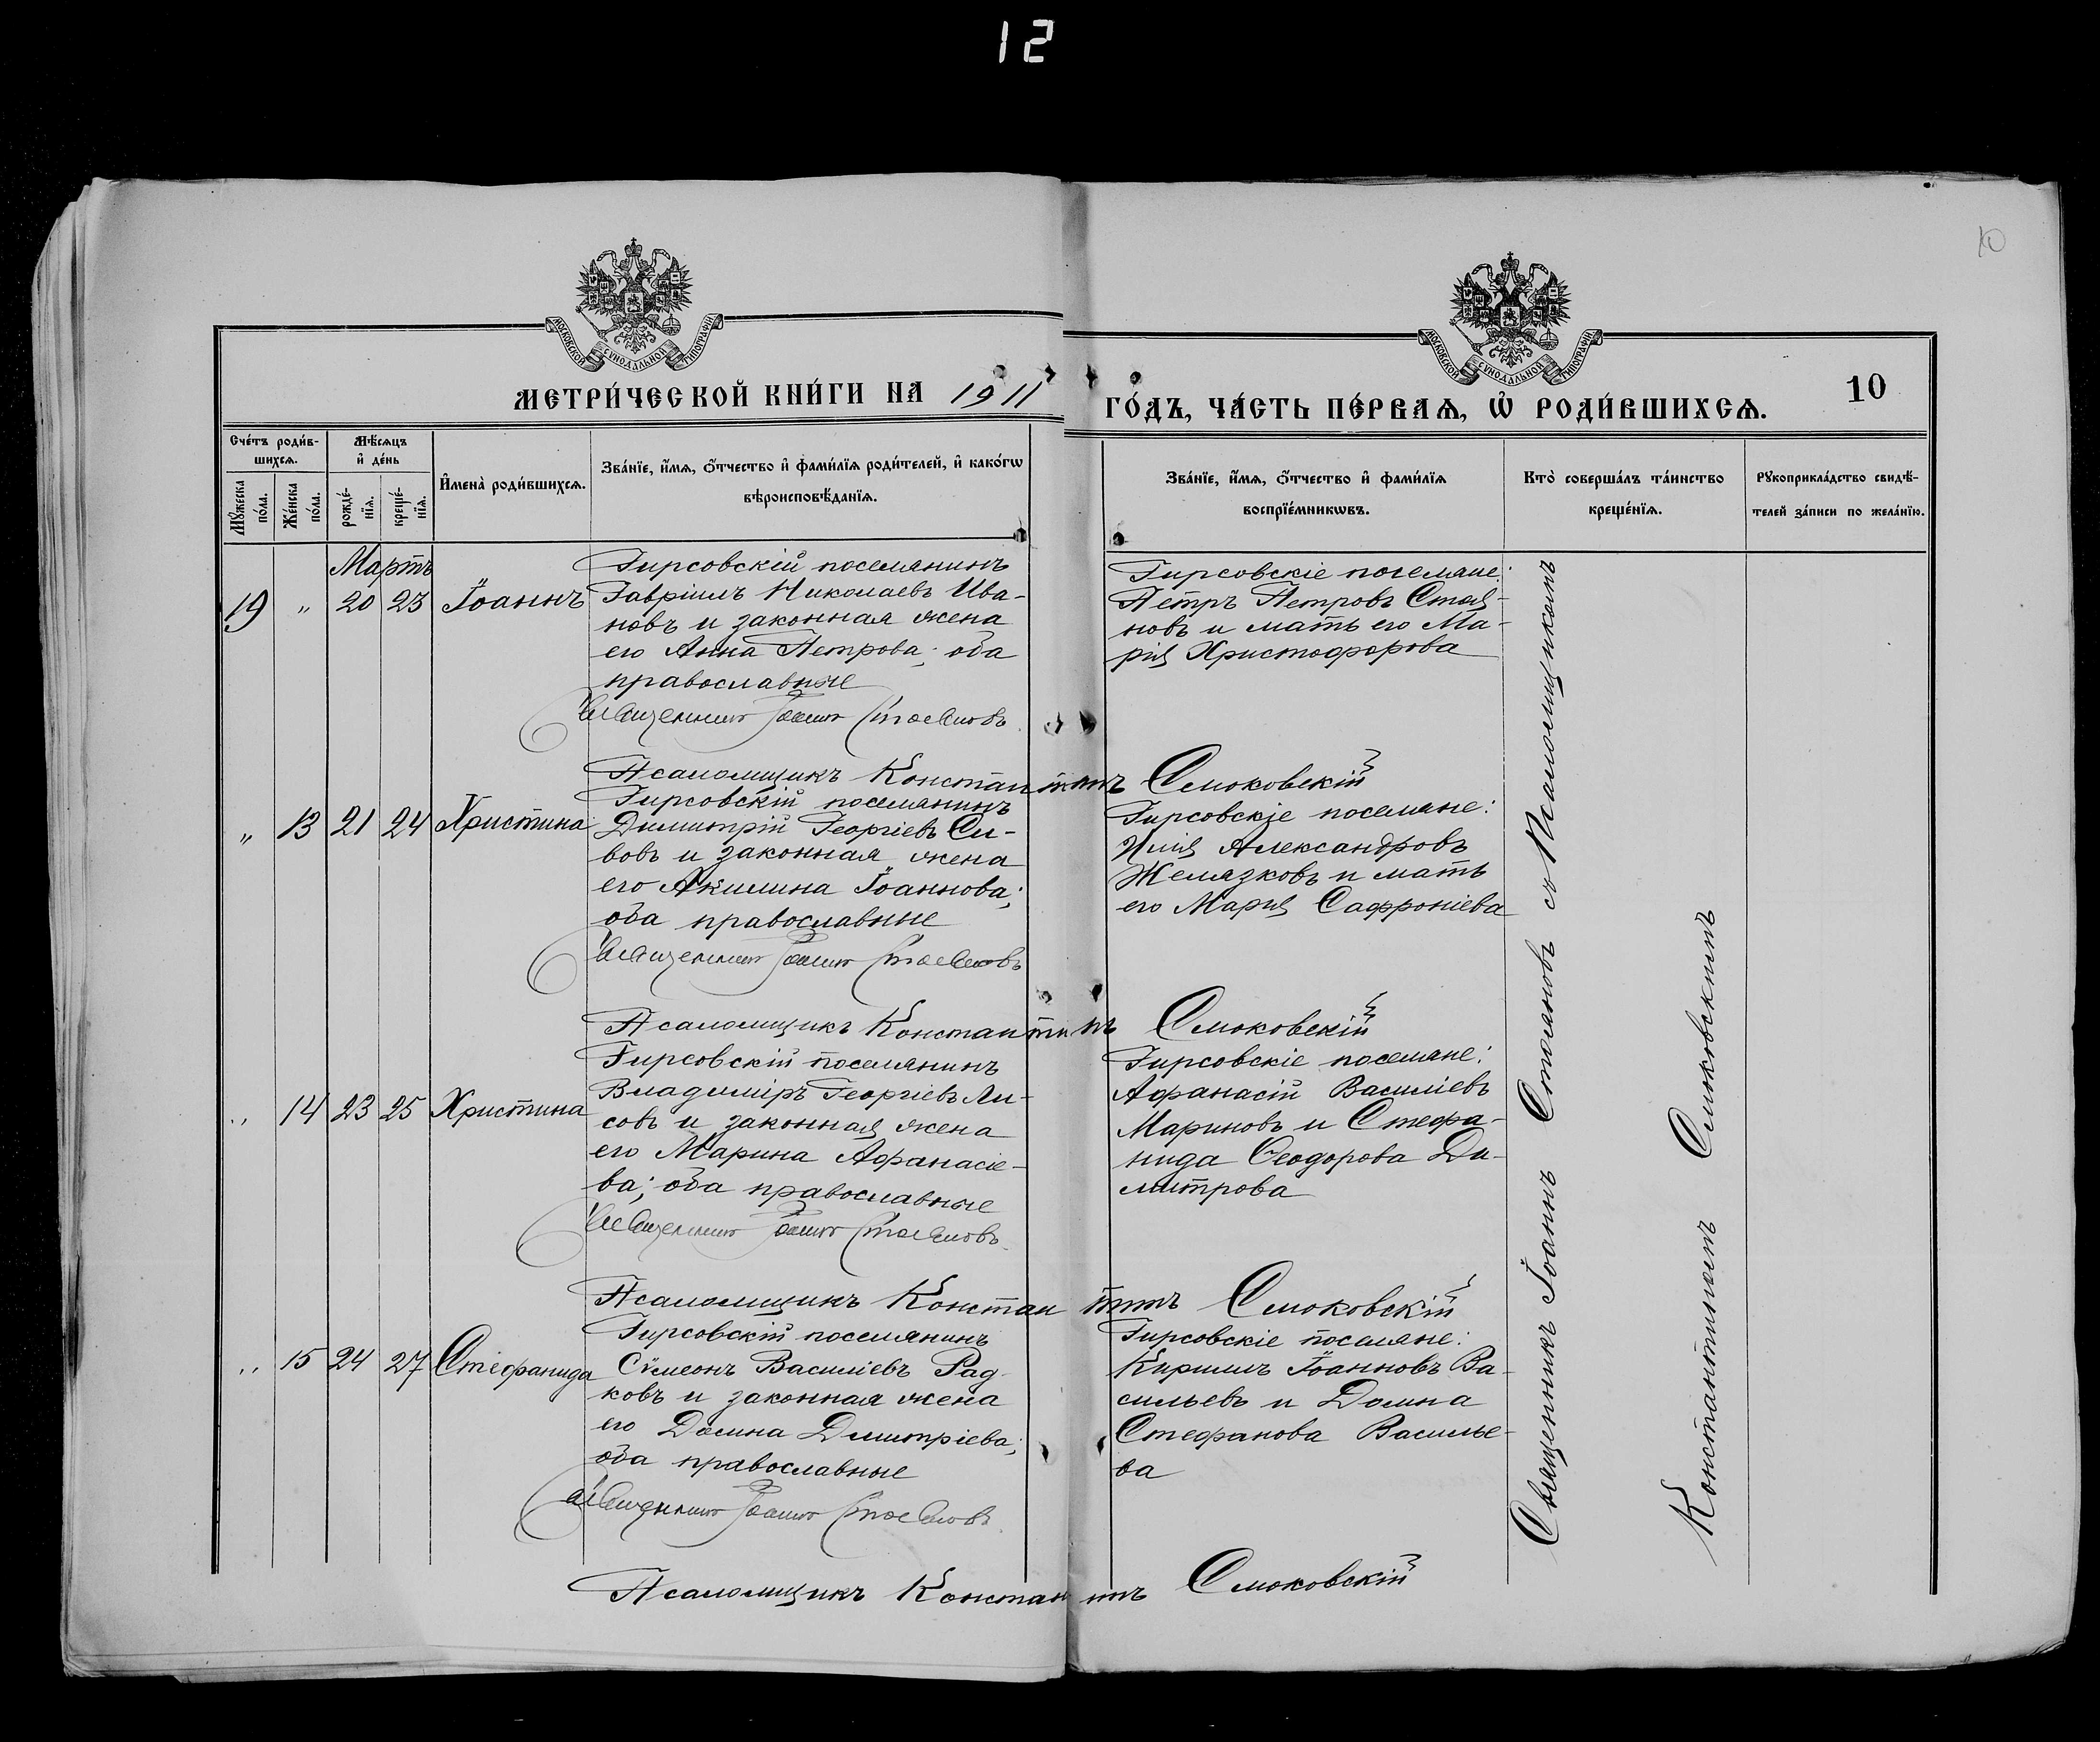 12
10
МОСКОВСКОЙ СѴНОДАЛЬНОЙ ТИПОГРАФІИ
МОСКОВСКОЙ СѴНОДАЛЬНОЙ ТИПОГРАФІИ
МЕТРИ́ЧЕСКОЙ КНИ́ГИ НА 1911
ГО́ДЪ, ЧА́СТЬ ПЕ́РВАѦ, Ѡ҆ РОДИ́ВШИХСѦ.
10
Сче́тъ роди́в-
шихсѧ.
Мѣ́сѧцъ
и҆ де́нь
Мꙋ́жеска
по́ла.
Же́нска
по́ла.
рожде́-
нїѧ.
креще́-
нїѧ.
И҆мена̀ роди́вшихсѧ.
Зва́нїе, и҆́мѧ, ѻ҆́тчество и҆ фами́лїѧ роди́телей, и҆ како́гѡ
вѣроисповѣ́данїѧ.
Зва́нїе, и҆́мѧ, ѻ҆́тчество и҆ фами́лїѧ
воспрїе́мникѡвъ.
Кто̀ соверша́лъ та́инство
креще́нїѧ.
Рꙋкоприкла́дство свидѣ́-
телей за́писи по жела́нїю.
Мартъ
19 " 20 23 Іоаннъ
Гирсовскій поселянинъ
Гавріилъ Николаевъ Ива-
новъ и законная жена
его Анна Петрова; оба
православные
Священникъ Іоаннъ Стояновъ
Псаломщикъ Константинъ Смоковскій
Гирсовскіе поселяне:
Петръ Петровъ Стоя-
новъ и мать его Ма-
рія Христофорова
" 13 21 24 Христина
Гирсовскій поселянинъ
Димитрій Георгіевъ Си-
вовъ и законная жена
его Акилина Іоаннова;
оба православные
Священникъ Іоаннъ Стояновъ
Псаломщикъ Константинъ Смоковскій
Гирсовскіе поселяне:
Илія Александровъ
Желязковъ и мать
его Марія Сафроніева
" 14 23 25 Христина
Гирсовскій поселянинъ
Владиміръ Георгіевъ Ли-
совъ и законная жена
его Марина Афанасіе-
ва; оба православные
Священникъ Іоаннъ Стояновъ
Псаломщикъ Константинъ Смоковскій
Гирсовскіе поселяне:
Афанасій Василіевъ
Мариновъ и Стефа-
нида Ѳеодорова Ди-
митрова
" 15 24 27 Стефанида
Гирсовскій поселянинъ
Сѵмеонъ Василіевъ Рад-
ковъ и законная жена
его Домна Димитріева;
оба православные
Священникъ Іоаннъ Стояновъ
Псаломщикъ Константинъ Смоковскій
Гирсовскіе поселяне:
Кириллъ Іоанновъ Ва-
сильевъ и Домна
Стефанова Василье-
ва
Священникъ Іоаннъ Стояновъ съ Псаломщикомъ
Константиномъ Смоковскимъ